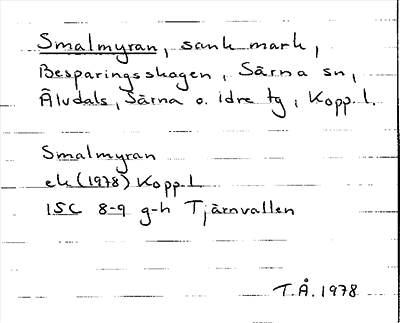 Smalmyran, sank mark,
Besparingsskogen, Särna sn,
Älvdals, Särna o. idre tg, Kopp. l.
Smalmyran
ek (1978) Kopp. l.
15C 8-9 g-h Tjärnvallen
T.Å. 1978